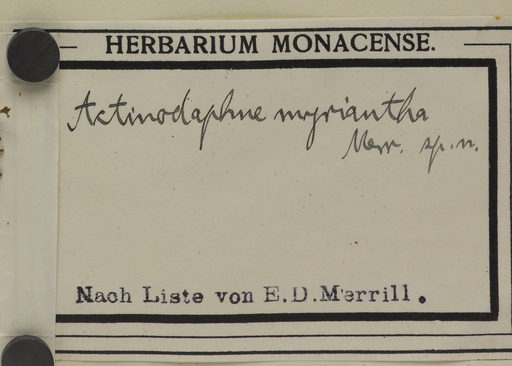 HERBARIUM MONACENSE.
Actinodaphne myriantha
Merr. sp. n.
Nach Liste von E.D.Merrill.